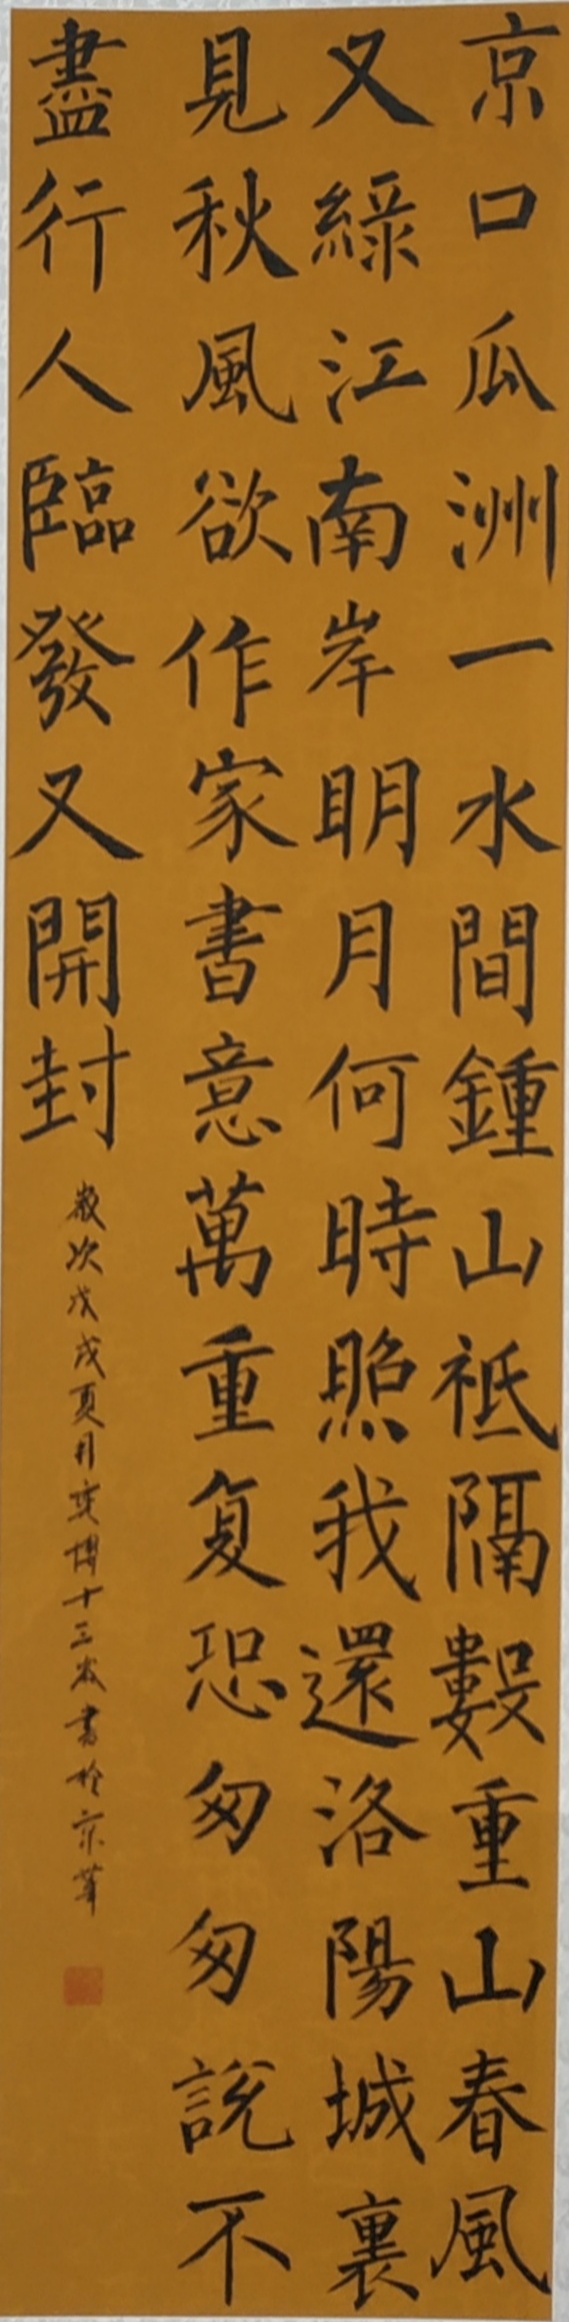 京口瓜洲一水間鍾山祗隔數重山春風
又綠江南岸明月何時照我還洛陽城裏
見秋風欲作家書意萬重复恐匆匆說不
盡行人臨發又開封
歲次戊戌夏月奕博十三歲書於京華